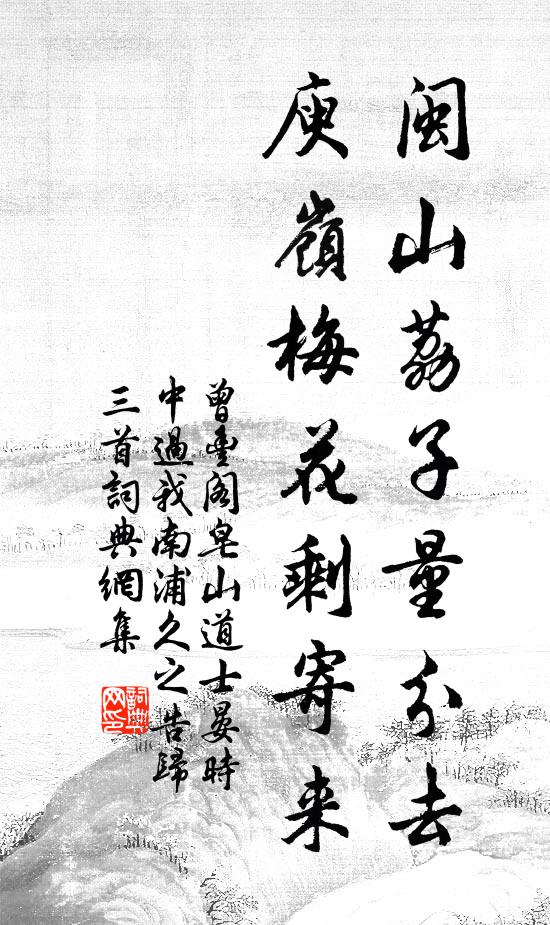 闽山荔子量分去
庾嶺梅花剩寄来
曾豊阁皂山道士晏時
中過我南浦久之告歸
三首詞典網集
詞典
网印